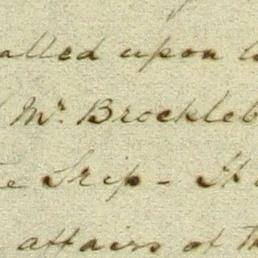 alled upon
Mr. Brockleb
Srip - It
affairs of th